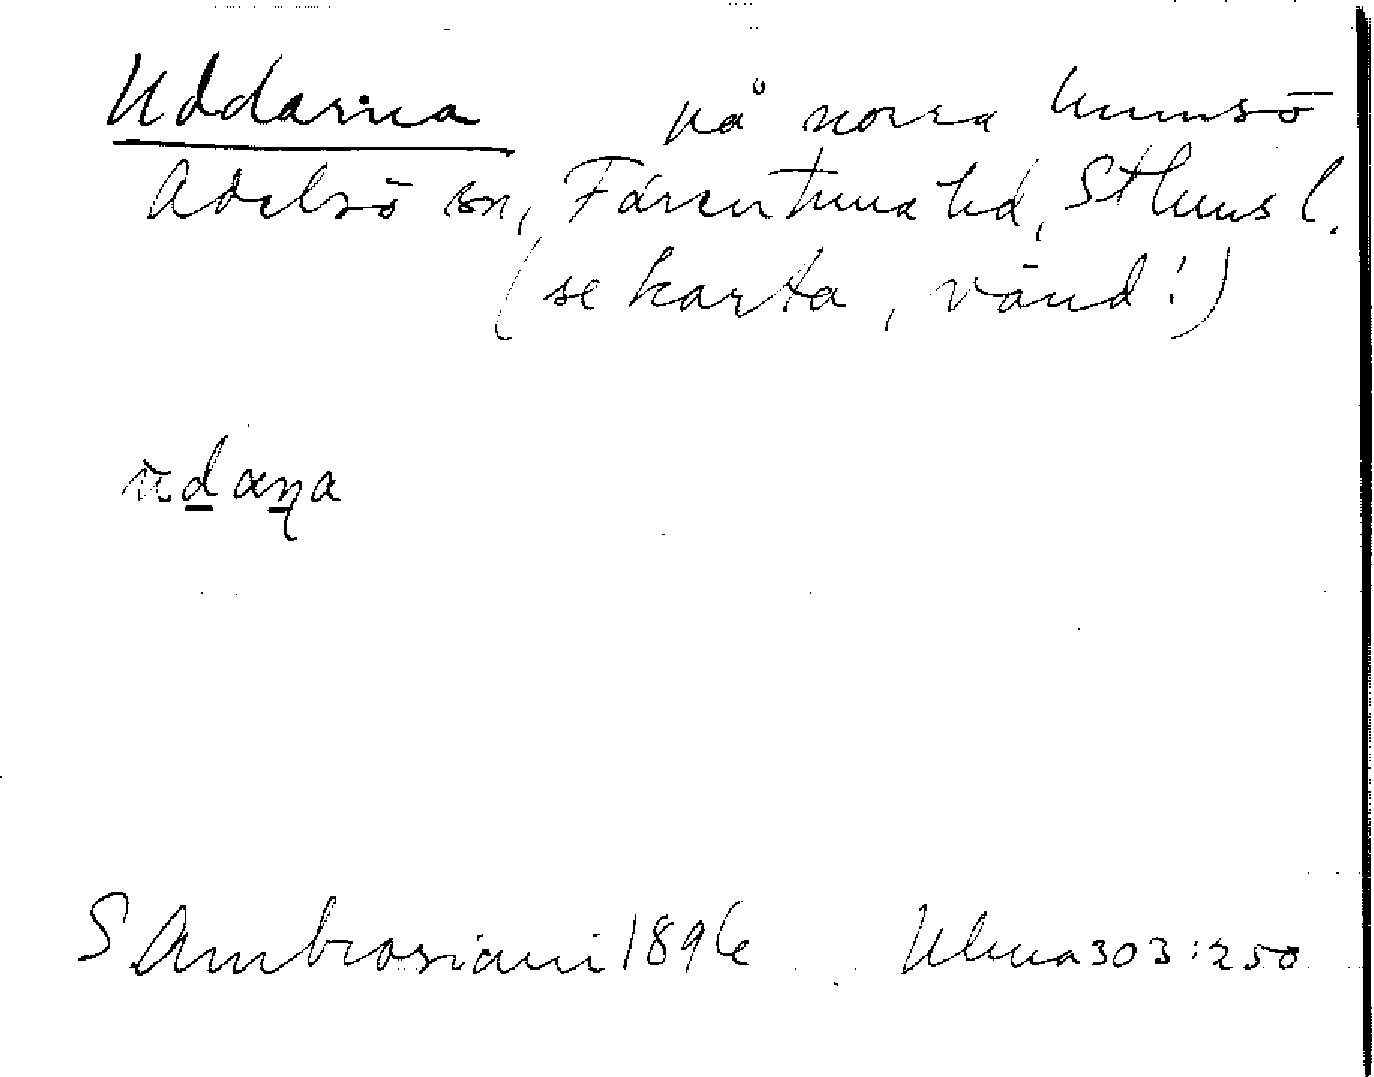 Uddarna på norra Munsö
Adelsö sn, Färentuna hd, Sthlms l.
(se karta, vänd!)
ud̲aṉa
S Ambrosiani 1896 Ulma 303:250